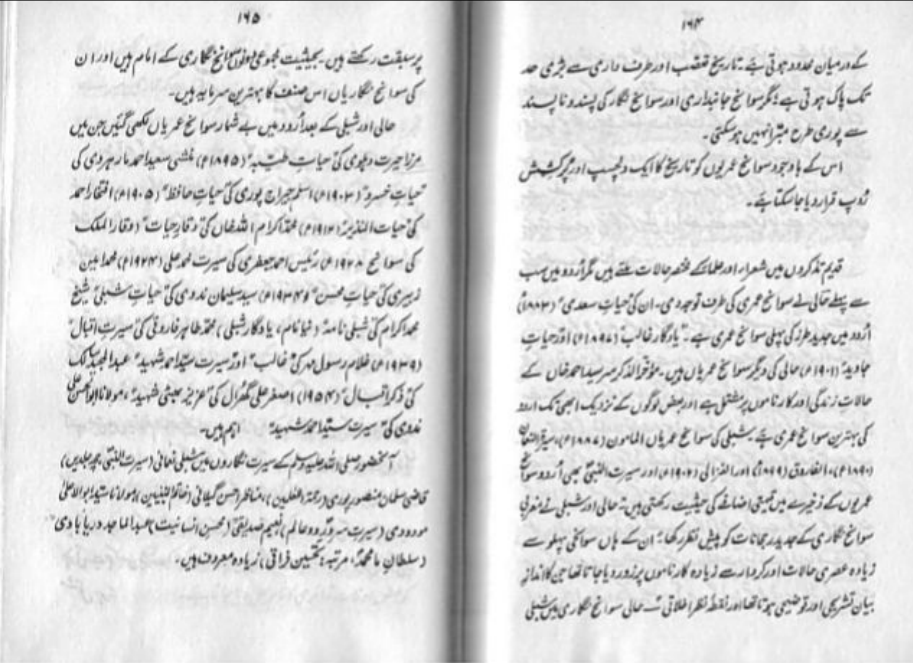 ۱۶۴
کے درمیان محدود ہوتی ہے۔ تاریخ تعصب اور طرف داری سے بڑی حد
تک پاک ہوتی ہے؛ مگر سوانح جانبداری اور سوانح نگار کی پسند و ناپسند
سے پوری طرح مبرّا نہیں ہو سکتی۔
اس کے باوجود سوانح عمریوں کو تاریخ کا ایک دلچسپ اور پُرکشش
رُوپ قرار دیا جا سکتا ہے۔
قدیم تذکروں میں شعراء اور علماء کے مختصر حالات ملتے ہیں مگر اُردو میں سب
سے پہلے حالی نے سوانح عمری کی طرف توجہ دی۔ ان کی "حیاتِ سعدی"
اُردو میں جدید طرز کی پہلی سوانح عمری ہے۔ "یادگارِ غالب" (۱۸۹۷ء) اور "حیاتِ
جاوید" (۱۹۰۱ء) حالی کی دیگر سوانح عمریاں ہیں۔ مؤخر الذکر سرسید احمد خاں کے
حالاتِ زندگی اور کارناموں پر مشتمل ہے اور بعض لوگوں کے نزدیک ابھی تک اردو
کی بہترین سوانح عمری ہے۔ شبلی کی سوانح عمریاں المامون (۱۸۸۷ء)، سیرۃ النعمان
(۱۸۹۰ء)، الفاروق (۱۸۹۹ء) اور الغزالی (۱۹۰۲ء) اور سیرت النبیؐ بھی اُردو سوانح
عمریوں کے ذخیرے میں قیمتی اضافے کی حیثیت رکھتی ہیں۔ حالی اور شبلی نے مغربی
سوانح نگاری کے جدید رجحانات کو پیشِ نظر رکھا؛ ان کے ہاں سوانحی پہلو سے
زیادہ عصری حالات اور کردار سے زیادہ کارناموں پر زور دیا جاتا تھا جن کا اندازِ
بیان تشریحی اور توضیحی ہوتا تھا اور نقطۂ نظر اخلاقی۔ حالی سوانح نگاری میں شبلی
۱۶۵
پر سبقت رکھتے ہیں۔ بحیثیت مجموعی دونوں سوانح نگاری کے امام ہیں اور ان
کی سوانح نگاریاں اس صنف کا بہترین سرمایہ ہیں۔
حالی اور شبلی کے بعد اُردو میں بے شمار سوانح عمریاں لکھی گئیں جن میں
مرزا حیرت دہلوی کی "حیاتِ طیبہ" (۱۸۹۵ء) منشی سعید احمد مارہروی کی
"حیاتِ خسرو" (۱۹۰۴ء) اسلم جیراج پوری کی "حیاتِ حافظ" (۱۹۰۵ء) افتخار احمد
کی "حیات النذیر" (۱۹۱۲ء) محمد اکرام اللہ خاں کی "وقارِ حیات" (وقار الملک
کی سوانح ۱۹۲۸ء) رئیس احمد جعفری کی سیرت محمد علی محمد امین
زبیری کی "حیاتِ محسن" (۱۹۳۴ء) سید سلیمان ندوی کی "حیاتِ شبلی" شیخ
محمد اکرام کی "شبلی نامہ" (نیا نام، یادگارِ شبلی) محمد طاہر فاروقی کی "سیرتِ اقبال"
(۱۹۳۹ء) غلام رسول مہر کی "غالب" اور "سیرت سید احمد شہید" عبدالمجید سالک
کی "ذکرِ اقبال" (۱۹۵۴ء) اصغر علی گھرال کی "عزیز بھٹی شہید"، مولانا ابوالحسن علی
ندوی کی "سیرت سید احمد شہید" اہم ہیں۔
آنحضور صلی اللہ علیہ وسلم کے سیرت نگاروں میں شبلی نعمانی (سیرت النبیؐ چھ جلدیں)
قاضی سلمان منصور پوری (رحمۃ للعالمین)، مناظر احسن گیلانی ، مولانا سید ابوالاعلیٰ
مودودی (سیرت سرورِ دو عالم)، نعیم صدیقی (محسنِ انسانیت) عبدالماجد دریابادی
(سلطانِ ما محمدؐ، مرتبہ: تحسین فراقی) زیادہ معروف ہیں۔